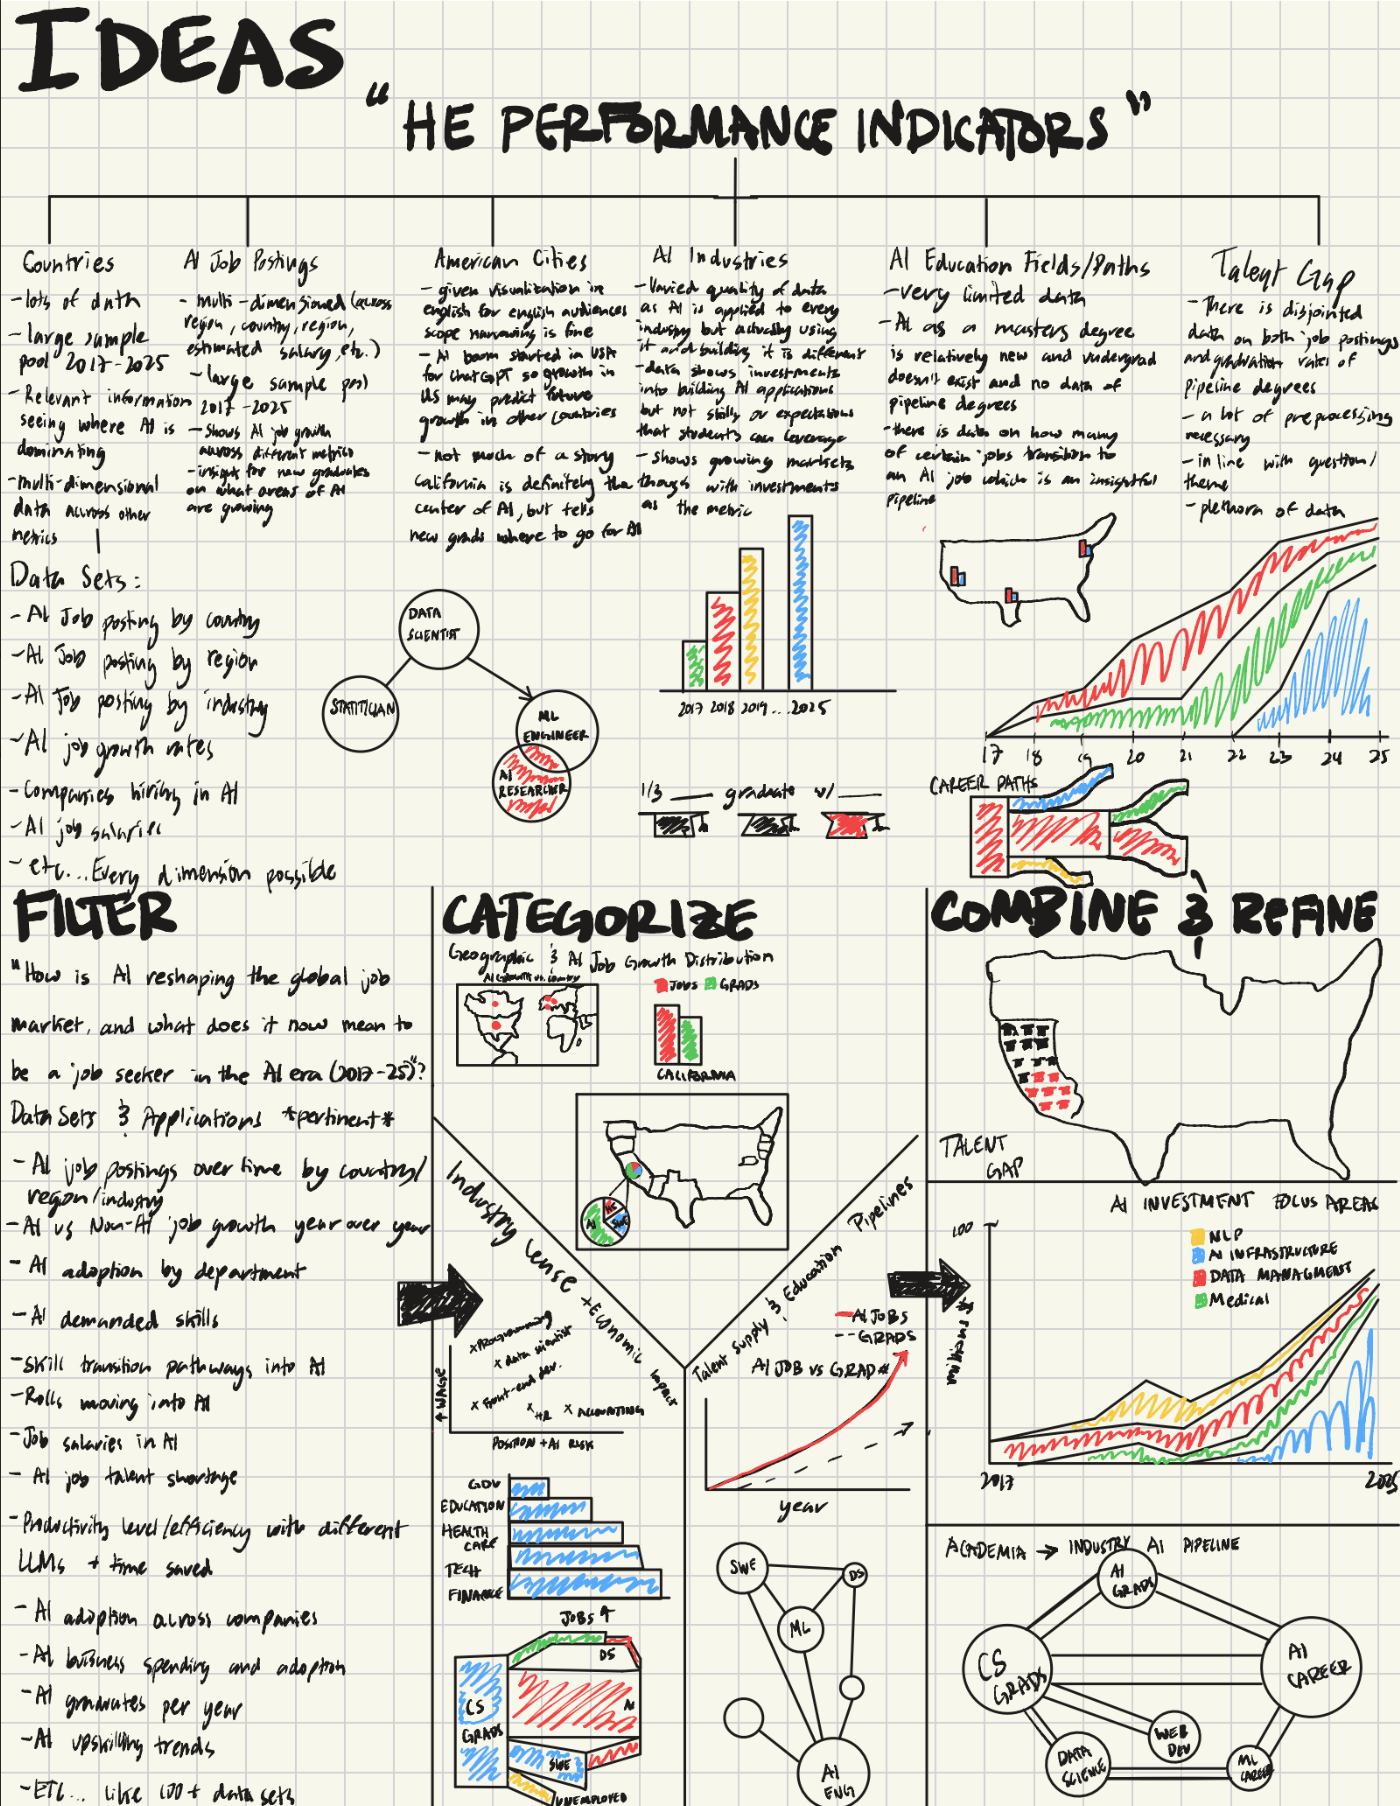 IDEAS
"HE PERFORMANCE INDICATORS"
Countries
-lots of data
-large sample
pool 2017-2025
-Relevant information
seeing where AI is
dominating
-multi-dimensional
data across other
metrics
AI Job Postings
- multi-dimensional (across
region, country, region,
estimated salary, etc.)
- large sample pool
2017-2025
-Shows AI job growth
across different metrics
-insight for new graduates
on what areas of AI
are growing
American Cities
- given visualization in
english for english audiences
scope narrowing is fine
- AI boom started in USA
for ChatGPT so growth in
US may predict future
growth in other countries
- not much of a story
California is definitely the
center of AI, but tells
new grads where to go for AI
AI Industries
-Varied quality of data
as AI is applied to every
industry but actually using
it and building it is different
-data shows investments
into building AI applications
but not skills or expectations
that students can leverage
-shows growing markets
though with investments
as the metric
AI Education Fields/Paths
-very limited data
-AI as a masters degree
is relatively new and undergrad
doesn't exist and no data of
pipeline degrees
-there is data on how many
of certain jobs transition to
an AI job which is an insightful
pipeline
Talent Gap
-There is disjointed
data on both job postings
and graduation rates of
pipeline degrees
- a lot of preprocessing
necessary
- in line with question/
theme
- plethora of data
Data Sets:
- AI Job posting by country
-AI Job posting by region
-AI Job posting by industry
-AI job growth rates
-Companies hiring in AI
-AI job salaries
- etc... Every dimension possible
DATA
SCIENTIST
STATITICIAN
ML
ENGINEER
AI
RESEARCHER
2017 2018 2019...2025
1/3 ____ graduate w/ ____
17 18 19 20 21 22 23 24 25
CAREER PATHS
FILTER
"How is AI reshaping the global job
market, and what does it now mean to
be a job seeker in the AI era (2017-25)"?
Data Sets & Applications *pertinent*
- AI job postings over time by country/
region/industry
-AI vs Non-AI job growth year over year
- AI adoption by department
-AI demanded skills
-Skill transition pathways into AI
-Rolls moving into AI
-Job salaries in AI
- AI job talent shortage
-Productivity level/efficiency with different
LLMs + time saved
- AI adoption across companies
-AI business spending and adoption
-AI graduates per year
-AI upskilling trends
-ETC... like 100+ data sets
CATEGORIZE
Geographic & AI Job Growth Distribution
AI Growth vs. country
JOBS GRADS
CALIFORNIA
AI
SWE
Industry Lense + Economic Impact
↑ WAGE
x Programming
x data scientist
x Front-end dev.
x HR
x ACCOUNTING
POSITION + AI RISK
GOV
EDUCATION
HEALTH
CARE
TECH
FINANCE
JOBS ↑
DS
CS
GRADS
AI
SWE
UNEMPLOYED
Talent Supply & Education Pipelines
AI JOBS
GRADS
AI JOB vs GRAD #
year
SWE
DS
ML
AI
ENG
COMBINE & REFINE
TALENT
GAP
AI INVESTMENT FOCUS AREAS
100
NLP
AI INFRASTRUCTURE
DATA MANAGMENT
Medical
2017
2025
ACADEMIA → INDUSTRY AI PIPELINE
AI
GRADS
CS
GRADS
AI
CAREER
WEB
DEV
DATA
SCIENCE
ML
CAREER